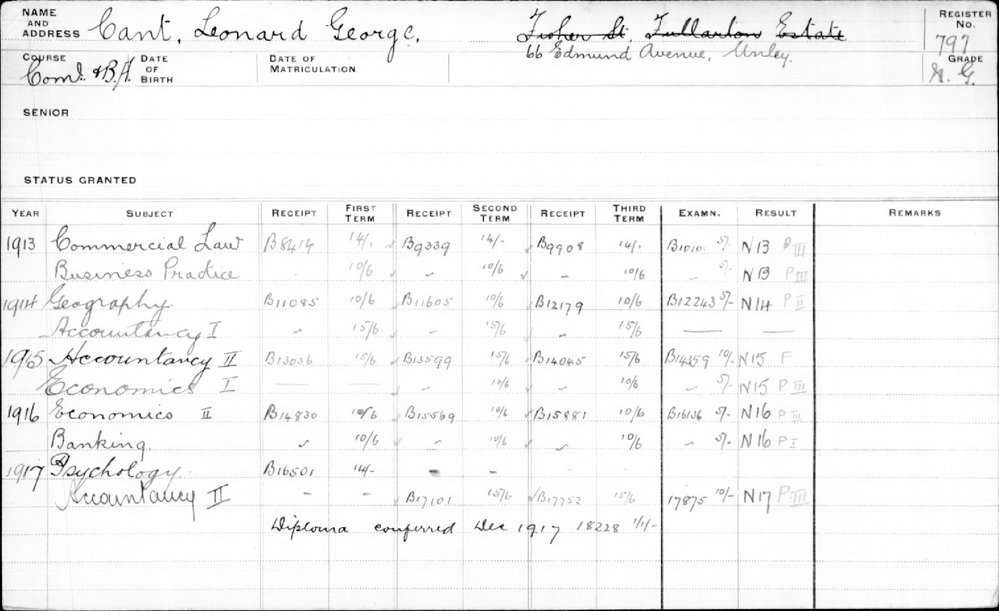 NAME AND ADDRESS Cant, Leonard George. Fisher St. Fullarton Estate
66 Edmund Avenue, Unley.
REGISTER No. 797
COURSE Coml. & B.A. DATE OF BIRTH DATE OF MATRICULATION GRADE N. G.
SENIOR
STATUS GRANTED
YEAR SUBJECT RECEIPT FIRST TERM RECEIPT SECOND TERM RECEIPT THIRD TERM EXAMN. RESULT REMARKS
1913 Commercial Law B8414 14/- B9339 14/- B9908 14/- B1010 5/- N13 P III
Business Practice 10/6 " 10/6 " 10/6 " 5/- N13 P III
1914 Geography B11085 10/6 B11605 10/6 B12179 10/6 B12243 5/- N14 P II
Accountancy I " 15/6 " 15/6 " 15/6 — —
1915 Accountancy II B13036 15/6 B13599 15/6 B14045 15/6 B14359 10/- N15 F
Economics I — — " 10/6 " 10/6 " 5/- N15 P III
1916 Economics II B14830 10/6 B15569 10/6 B15881 10/6 B16136 5/- N16 P III
Banking. " 10/6 " 10/6 " 10/6 " 5/- N16 P I
1917 Psychology B16501 14/- - - - -
Accountancy II - - B17101 15/6 B17752 15/6 17875 10/- N17 P III
Diploma conferred Dec 1917 18228 1/11/-